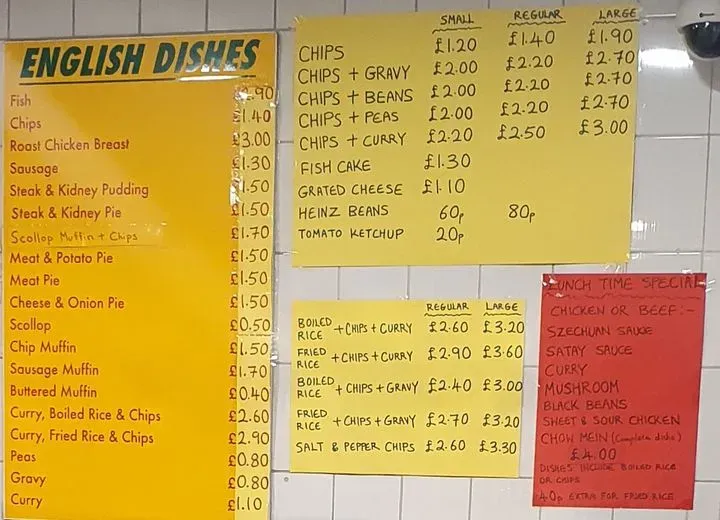 ENGLISH DISHES
Fish £2.90
Chips £1.40
Roast Chicken Breast £3.00
Sausage £1.30
Steak & Kidney Pudding £1.50
Steak & Kidney Pie £1.50
Scollop Muffin + Chips £1.70
Meat & Potato Pie £1.50
Meat Pie £1.50
Cheese & Onion Pie £1.50
Scollop £0.50
Chip Muffin £1.50
Sausage Muffin £1.70
Buttered Muffin £0.40
Curry, Boiled Rice & Chips £2.60
Curry, Fried Rice & Chips £2.90
Peas £0.80
Gravy £0.80
Curry £1.10
SMALL REGULAR LARGE
CHIPS £1.20 £1.40 £1.90
CHIPS + GRAVY £2.00 £2.20 £2.70
CHIPS + BEANS £2.00 £2.20 £2.70
CHIPS + PEAS £2.00 £2.20 £2.70
CHIPS + CURRY £2.20 £2.50 £3.00
FISH CAKE £1.30
GRATED CHEESE £1.10
HEINZ BEANS 60p 80p
TOMATO KETCHUP 20p
REGULAR LARGE
BOILED RICE + CHIPS + CURRY £2.60 £3.20
FRIED RICE + CHIPS + CURRY £2.90 £3.60
BOILED RICE + CHIPS + GRAVY £2.40 £3.00
FRIED RICE + CHIPS + GRAVY £2.70 £3.20
SALT & PEPPER CHIPS £2.60 £3.30
LUNCH TIME SPECIAL
CHICKEN OR BEEF:-
SZECHUAN SAUCE
SATAY SAUCE
CURRY
MUSHROOM
BLACK BEANS
SWEET & SOUR CHICKEN
CHOW MEIN (Complete dish)
£4.00
DISHES INCLUDE BOILED RICE
OR CHIPS
40p EXTRA FOR FRIED RICE